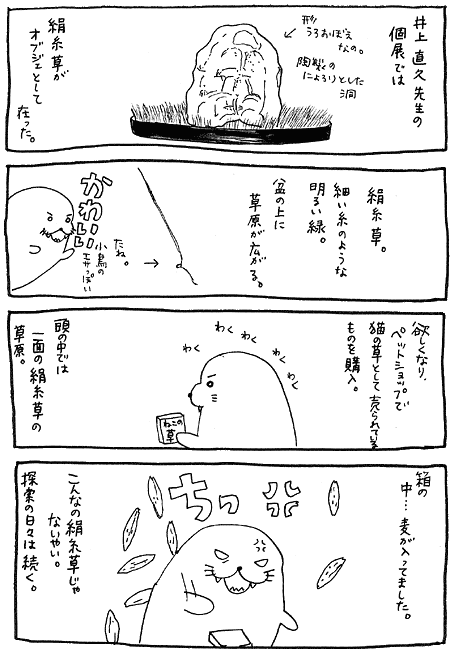 井上直久先生の
個展では
形
うろおぼえ
なの。
陶製の
にょろりとした
洞
絹糸草が
オブジェとして
在った。
絹糸草。
細い糸のような
明るい緑。
盆の上に
草原が広がる。
たね。
小鳥の
エサっぽい
かわいい
欲しくなり、
ペットショップで
猫の草として売られている
ものを購入。
わく
わく
わく
わく
わく
ねこの
草
頭の中では
一面の絹糸草の
草原。
箱の
中…麦が入ってました。
ちっ
こんなの絹糸草じゃ
ないやい。
探索の日々は続く。